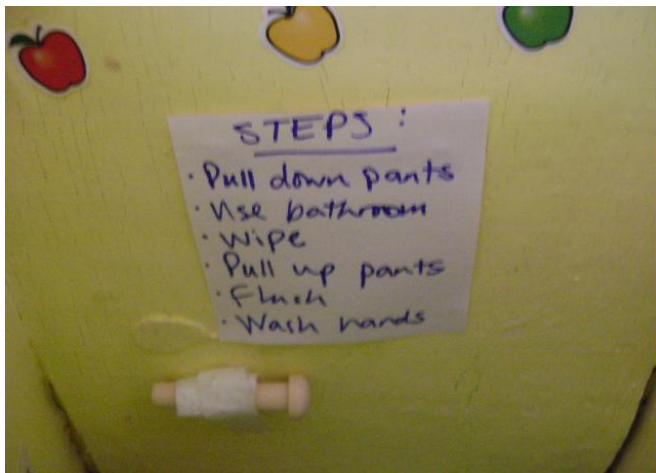 STEPS :
· Pull down pants
· Use bathroom
· Wipe
· Pull up pants
· Flush
· Wash hands